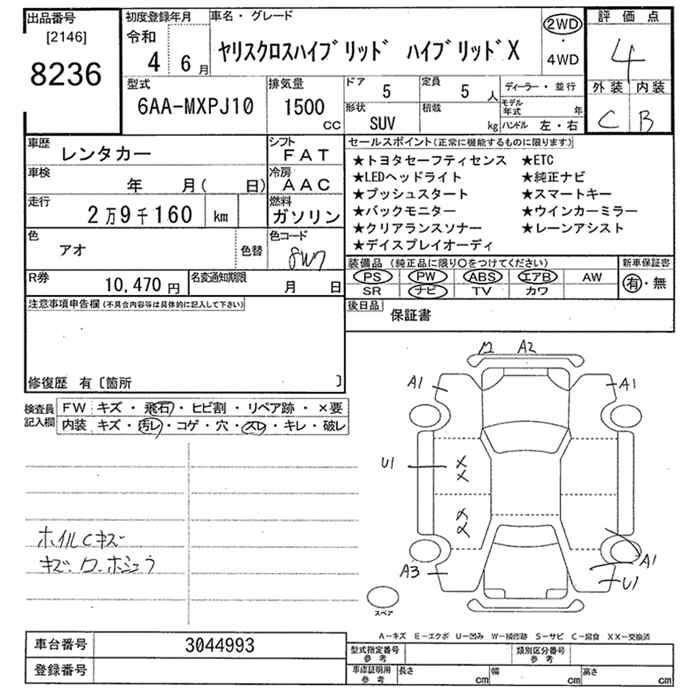 出品番号
[2146]
8236
初度登録年月
令和
4 6月
車名・グレード
ヤリスクロスハイブリッド ハイブリッドX
2WD
・
4WD
評価点
4
外装 内装
C B
型式
6AA-MXPJ10
排気量
1500
CC
ドア
5
定員
5 人
形状
SUV
積載
kg
ディーラー・並行
モデル年式 年
ハンドル 左・右
車歴
レンタカー
シフト
FAT
車検
年 月( 日)
冷房
AAC
走行
2万9千160 km
燃料
ガソリン
色
アオ
色替
色コード
8W7
R券
10,470円
名変通知期限
月 日
セールスポイント(正常に機能するものに限ります)
★トヨタセーフティセンス ★ETC
★LEDヘッドライト ★純正ナビ
★プッシュスタート ★スマートキー
★バックモニター ★ウインカーミラー
★クリアランスソナー ★レーンアシスト
★デイスプレイオーディ
装備品 (純正品に限り○をつけてください)
新車保証書
PS PW ABS エアB AW
SR ナビ TV カワ
有・無
後日品
保証書
注意事項申告欄(不具合内容等は具体的に記入して下さい)
修復歴 有〔箇所 〕
検査員記入欄
FW キズ・飛石・ヒビ割・リペア跡・×要
内装 キズ・汚レ・コゲ・穴・スレ・キレ・破レ
A2
A1
A1
U1
A3
A1
U1
スペア
A-キズ E-エクボ U-凹み W-補修跡 S-サビ C-腐食 XX-交換済
車台番号 3044993
登録番号
型式指定番号
参考
類別区分番号
参考
車庫証明用
参考
長さ cm
幅 cm
高さ cm